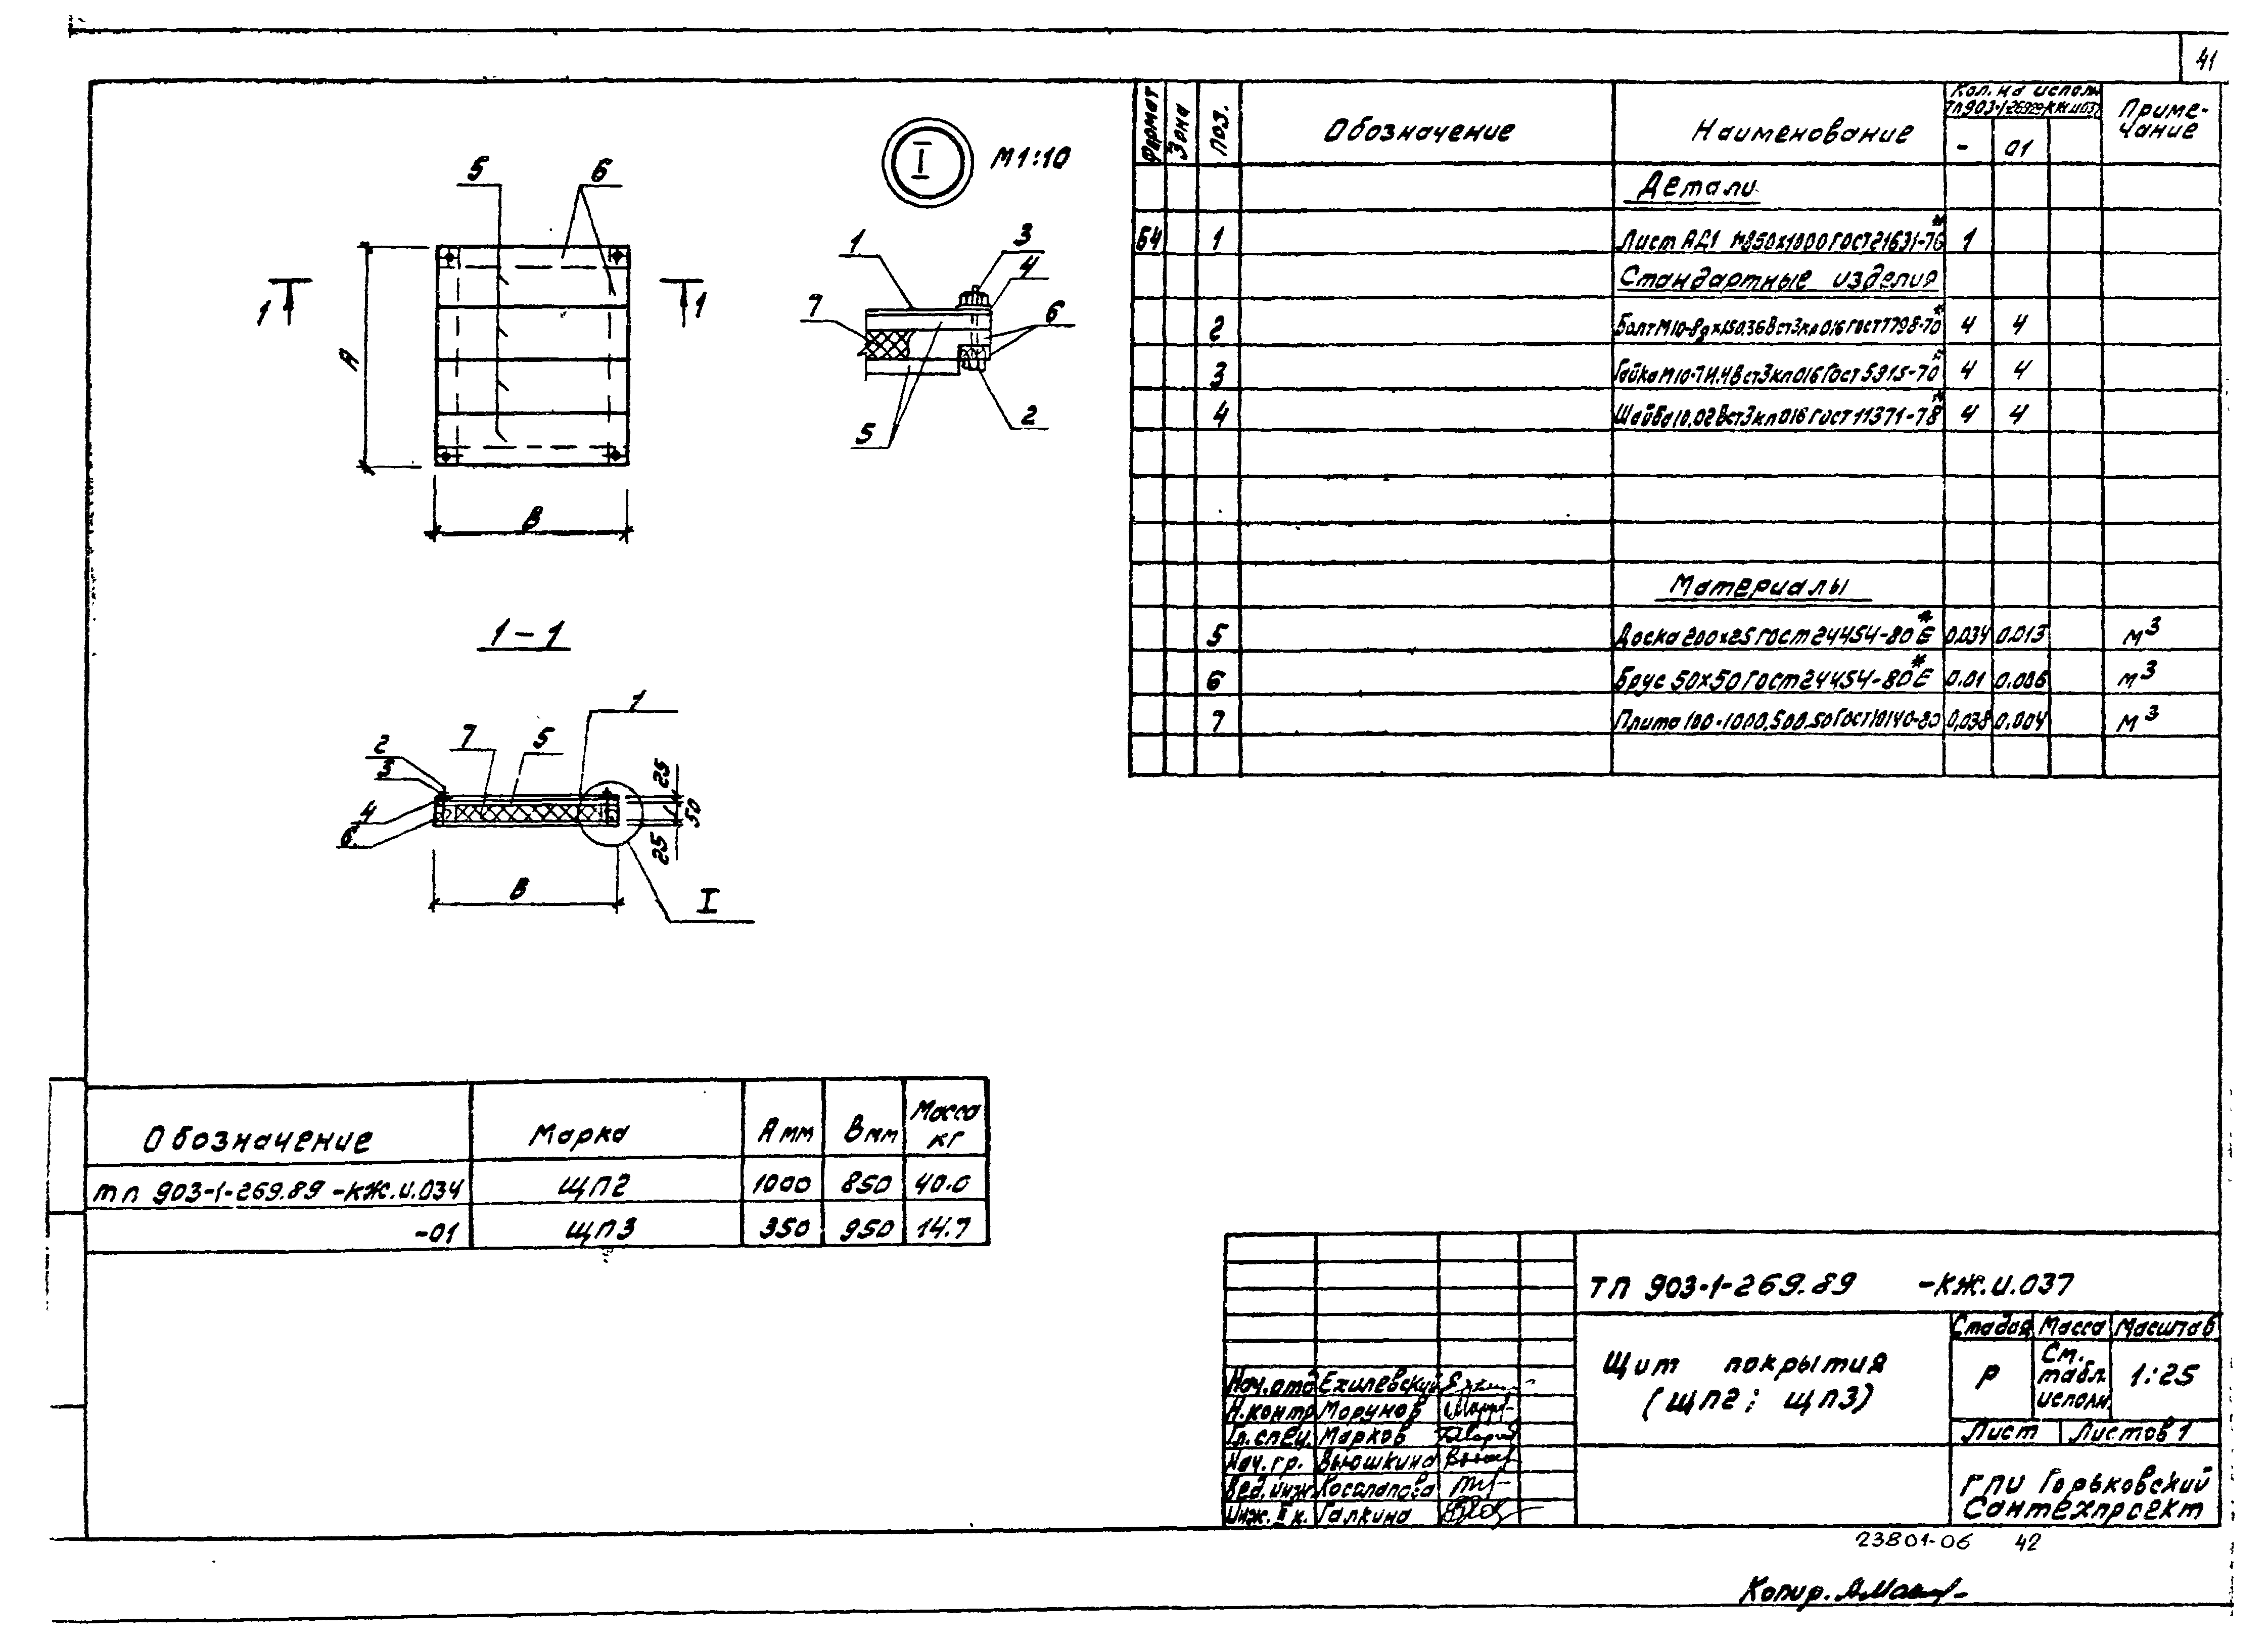 41
5
6
I
М1:10
1
3
4
7
6
5
2
1
1
А
В
1-1
1
7
5
2
3
4
6
25
50
25
В
I
Формат
Зона
Поз.
Обозначение
Наименование
Кол. на исполн.
ТП903-1-269.89-КЖ.И.037
- 01
Приме-
чание
Детали
Б4 1 Лист АД1 850х1000 ГОСТ 21631-76* 1
Стандартные изделия
2 Болт М10-8gх150.36 Вст3кп016 ГОСТ 7798-70* 4 4
3 Гайка М10-7Н.4 Вст3кп016 ГОСТ 5915-70* 4 4
4 Шайба 10.02 Вст3кп016 ГОСТ 11371-78* 4 4
Материалы
5 Доска 200х25 ГОСТ 24454-80Е* 0,034 0.013 м3
6 Брус 50х50 ГОСТ 24454-80Е* 0.01 0.006 м3
7 Плита 100-1000.500.50 ГОСТ 10140-80 0,038 0.004 м3
Обозначение Марка А мм В мм Масса кг
ТП 903-1-269.89 -КЖ.И.034 ЩП2 1000 850 40.0
-01 ЩП3 350 950 14.7
ТП 903-1-269.89 -КЖ.И.037
Щит покрытия
(ЩП2; ЩП3)
Стадия Масса Масштаб
Р См. табл. исполн. 1:25
Лист Листов 1
ГПИ Горьковский
Сантехпроект
Нач.отд Ехилевский
Н.контр Морунов
Гл.спец. Марков
Нач.гр. Вьюшкина
Вед.инж. Косолапова
Инж.II к. Галкина
23801-06 42
Копир.